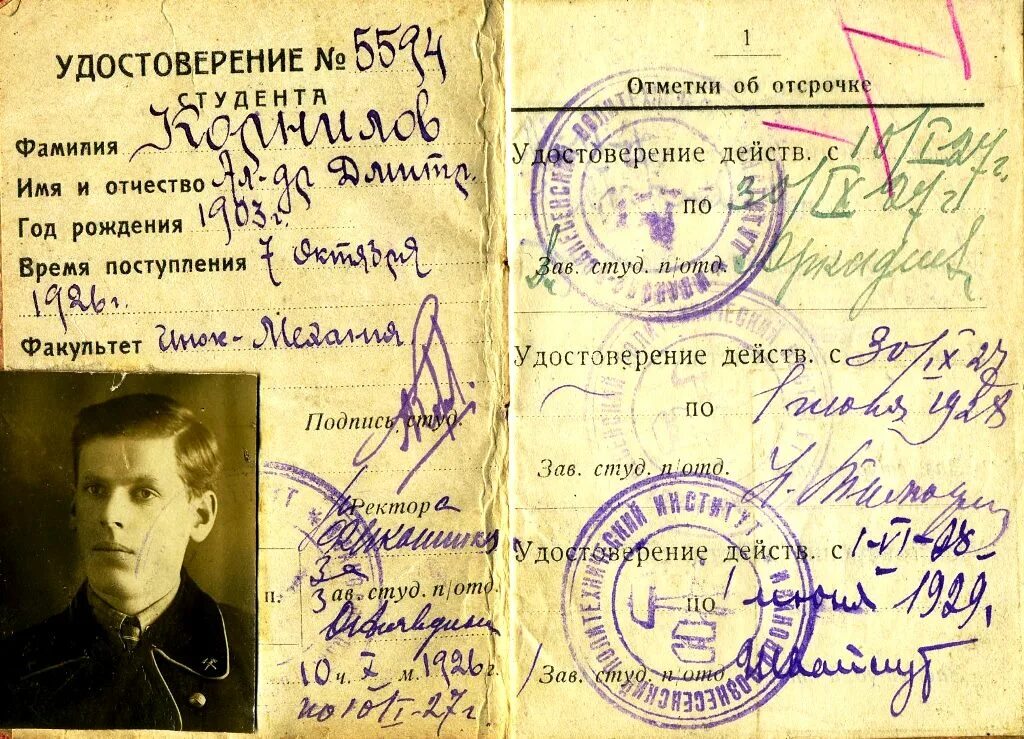 УДОСТОВЕРЕНИЕ № 5594
СТУДЕНТА
Фамилия Корнилов
Имя и отчество Ал-др Дмитр.
Год рождения 1903 г.
Время поступления 7 октября
1926 г.
Факультет Инж-Механич
Подпись студ.
Ректора
За
Зав. студ. п/отд.
10 ч. X м. 1926 г.
по 10/I-27 г.
1
Отметки об отсрочке
Удостоверение действ. с 10/I-27 г.
по 30/IX-27 г
Зав. студ. п/отд.
Удостоверение действ. с 30/IX 27
по 1 июня 1928
Зав. студ. п/отд.
Удостоверение действ. с 1-VI-28
по 1 июня 1929 г.
Зав. студ. п/отд
ИВАНОВО-ВОЗНЕСЕНСКИЙ ПОЛИТЕХНИЧЕСКИЙ ИНСТИТУТ